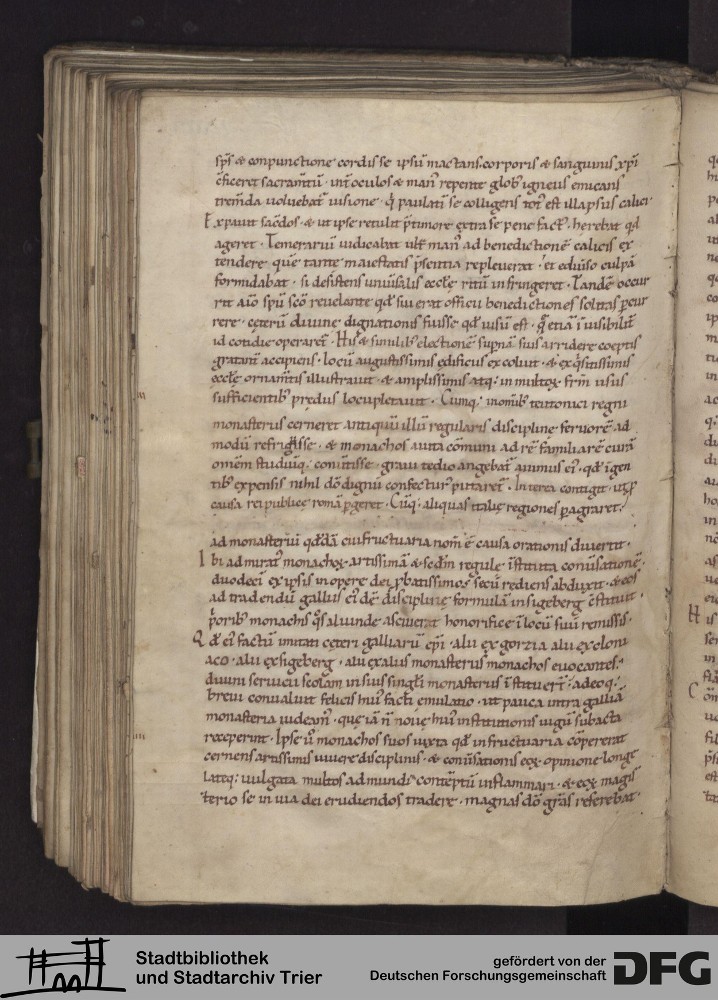 sp̄s & conpunctione cordis se ipsū mactans. corporis & sanguinis xp̄i
c̄ficeret sacram̄tū · int̄ oculos & man᾽ repente glob᾽ igneus emicans
trem̄da uoluebat᾽ uisione · q̄ paulatī se colligens tot᾽ est illapsus calici·
Expauit sac̄dos · & ut ipse retulit p̄ timore extra se pene fact᾽ · herebat qd
ageret · Temerariū iudicabat ult᾽ man᾽ ad benedictionē calicis ex
tendere quē tante maiestatis p̄sentia repleuerat · et ediuiso culpā
formidabat · si desistens uniūsalis eccłę ritū infringeret · Tandē occur
rit au᾽o spū scō reuelante qd sui erat officii benedictiones solitas pcur
rere · cęterū diuinę dignationis fuisse qd uisū est · q̄ etiā īuisibilit᾽
id cotidie operaret᾽ · His & similib᾽ electionē supnā suis arridere coeptis
gratant᾽ accipiens · locū augustissimis edificiis excoluit · & exq̄sitissimis
eccłę ornam̄tis illustrauit · & amplissimis atq; in multꝝ frm̄ usus
sufficientib᾽ prediis locupletauit · Cumq; in omīb᾽ teutonici regni
monasteriis cerneret antiquū illū regularis disciplinę feruorē ad
modū refrigisse · & monachos a uita cōmuni ad rē familiarē curā
om̄em studiūq; conūtisse · graui tedio angebat᾽ animus ei᾽ · qd īgen
tib᾽ expensis nihil dō dignū confectur᾽ putaret᾽ · Interea contigit · ut p
causa rei publicę romā pgeret · Cūq; aliquas italię regiones pagraret ·
ad monasteriū qddā cui fructuaria nom̄ ē causa orationis diuertit ·
Ibi admirat᾽ monachoꝝ artissimā & scdm regulę īstituta conūsationē ·
duodeci ex ipsis in opere dei pbatissimos secū rediens abduxit · & eos
ad tradendū gallus ei᾽dē disciplinę formulā in sigeberg c̄stituit ·
p̄orib᾽ monachis q̄s aliunde asciuerat honorifice ī locū suū remissis ·
Qd ei᾽ factū imitati cęteri galliarū ep̄i · alii ex gorzia alii ex cloni
aco · alii ex sigeberg · alii ex aliis monasteriis monachos euocantes ·
diuini seruicii scolam in suis singłi monasteriis īstituert̄ · adeoq;
breui conualuit felicis hui᾽ facti emulatio · ut pauca intra galliā
monasteria uideam᾽ · quę iā n̄ nouę hui᾽ institutionis iugū subacta
receperint · Ipse ū᾽ monachos suos iuxta qd in fructuaria cōpererat
cernens artissimis uiuere disciplinis · & conūsationis eoꝝ opinione longe
lateq; uulgata multos ad mundi contēptū inflammari · & eoꝝ magis
terio se in uia dei erudiendos tradere · magnas dō grās referebat ·
Stadtbibliothek
und Stadtarchiv Trier
gefördert von der
Deutschen Forschungsgemeinschaft DFG